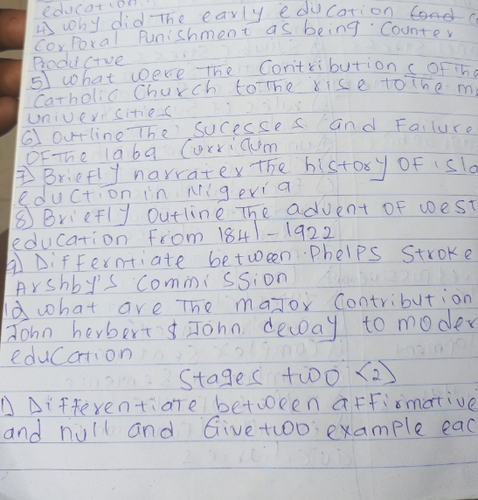 education.
4) why did The early education Cond c
Corporal Punishment as being Counter
Productve
5) what were The Contributions OFThe
Catholic Church toThe rise toThe m
universities
6) outline The Sucesses and Failure
OFThe 1969 Curriqum
7) Briefly narrater The history OF isla
eduction in Nigeria
8) Briefly outline The advent OF west
education From 1841-1922
9) Differntiate between Phelps Stroke
Arshby's Commission
10 what are The major Contribution
John herbert & John deway to moder
education
Stages two (2)
1) Differentiate between affirmative
and null and Give two example eac